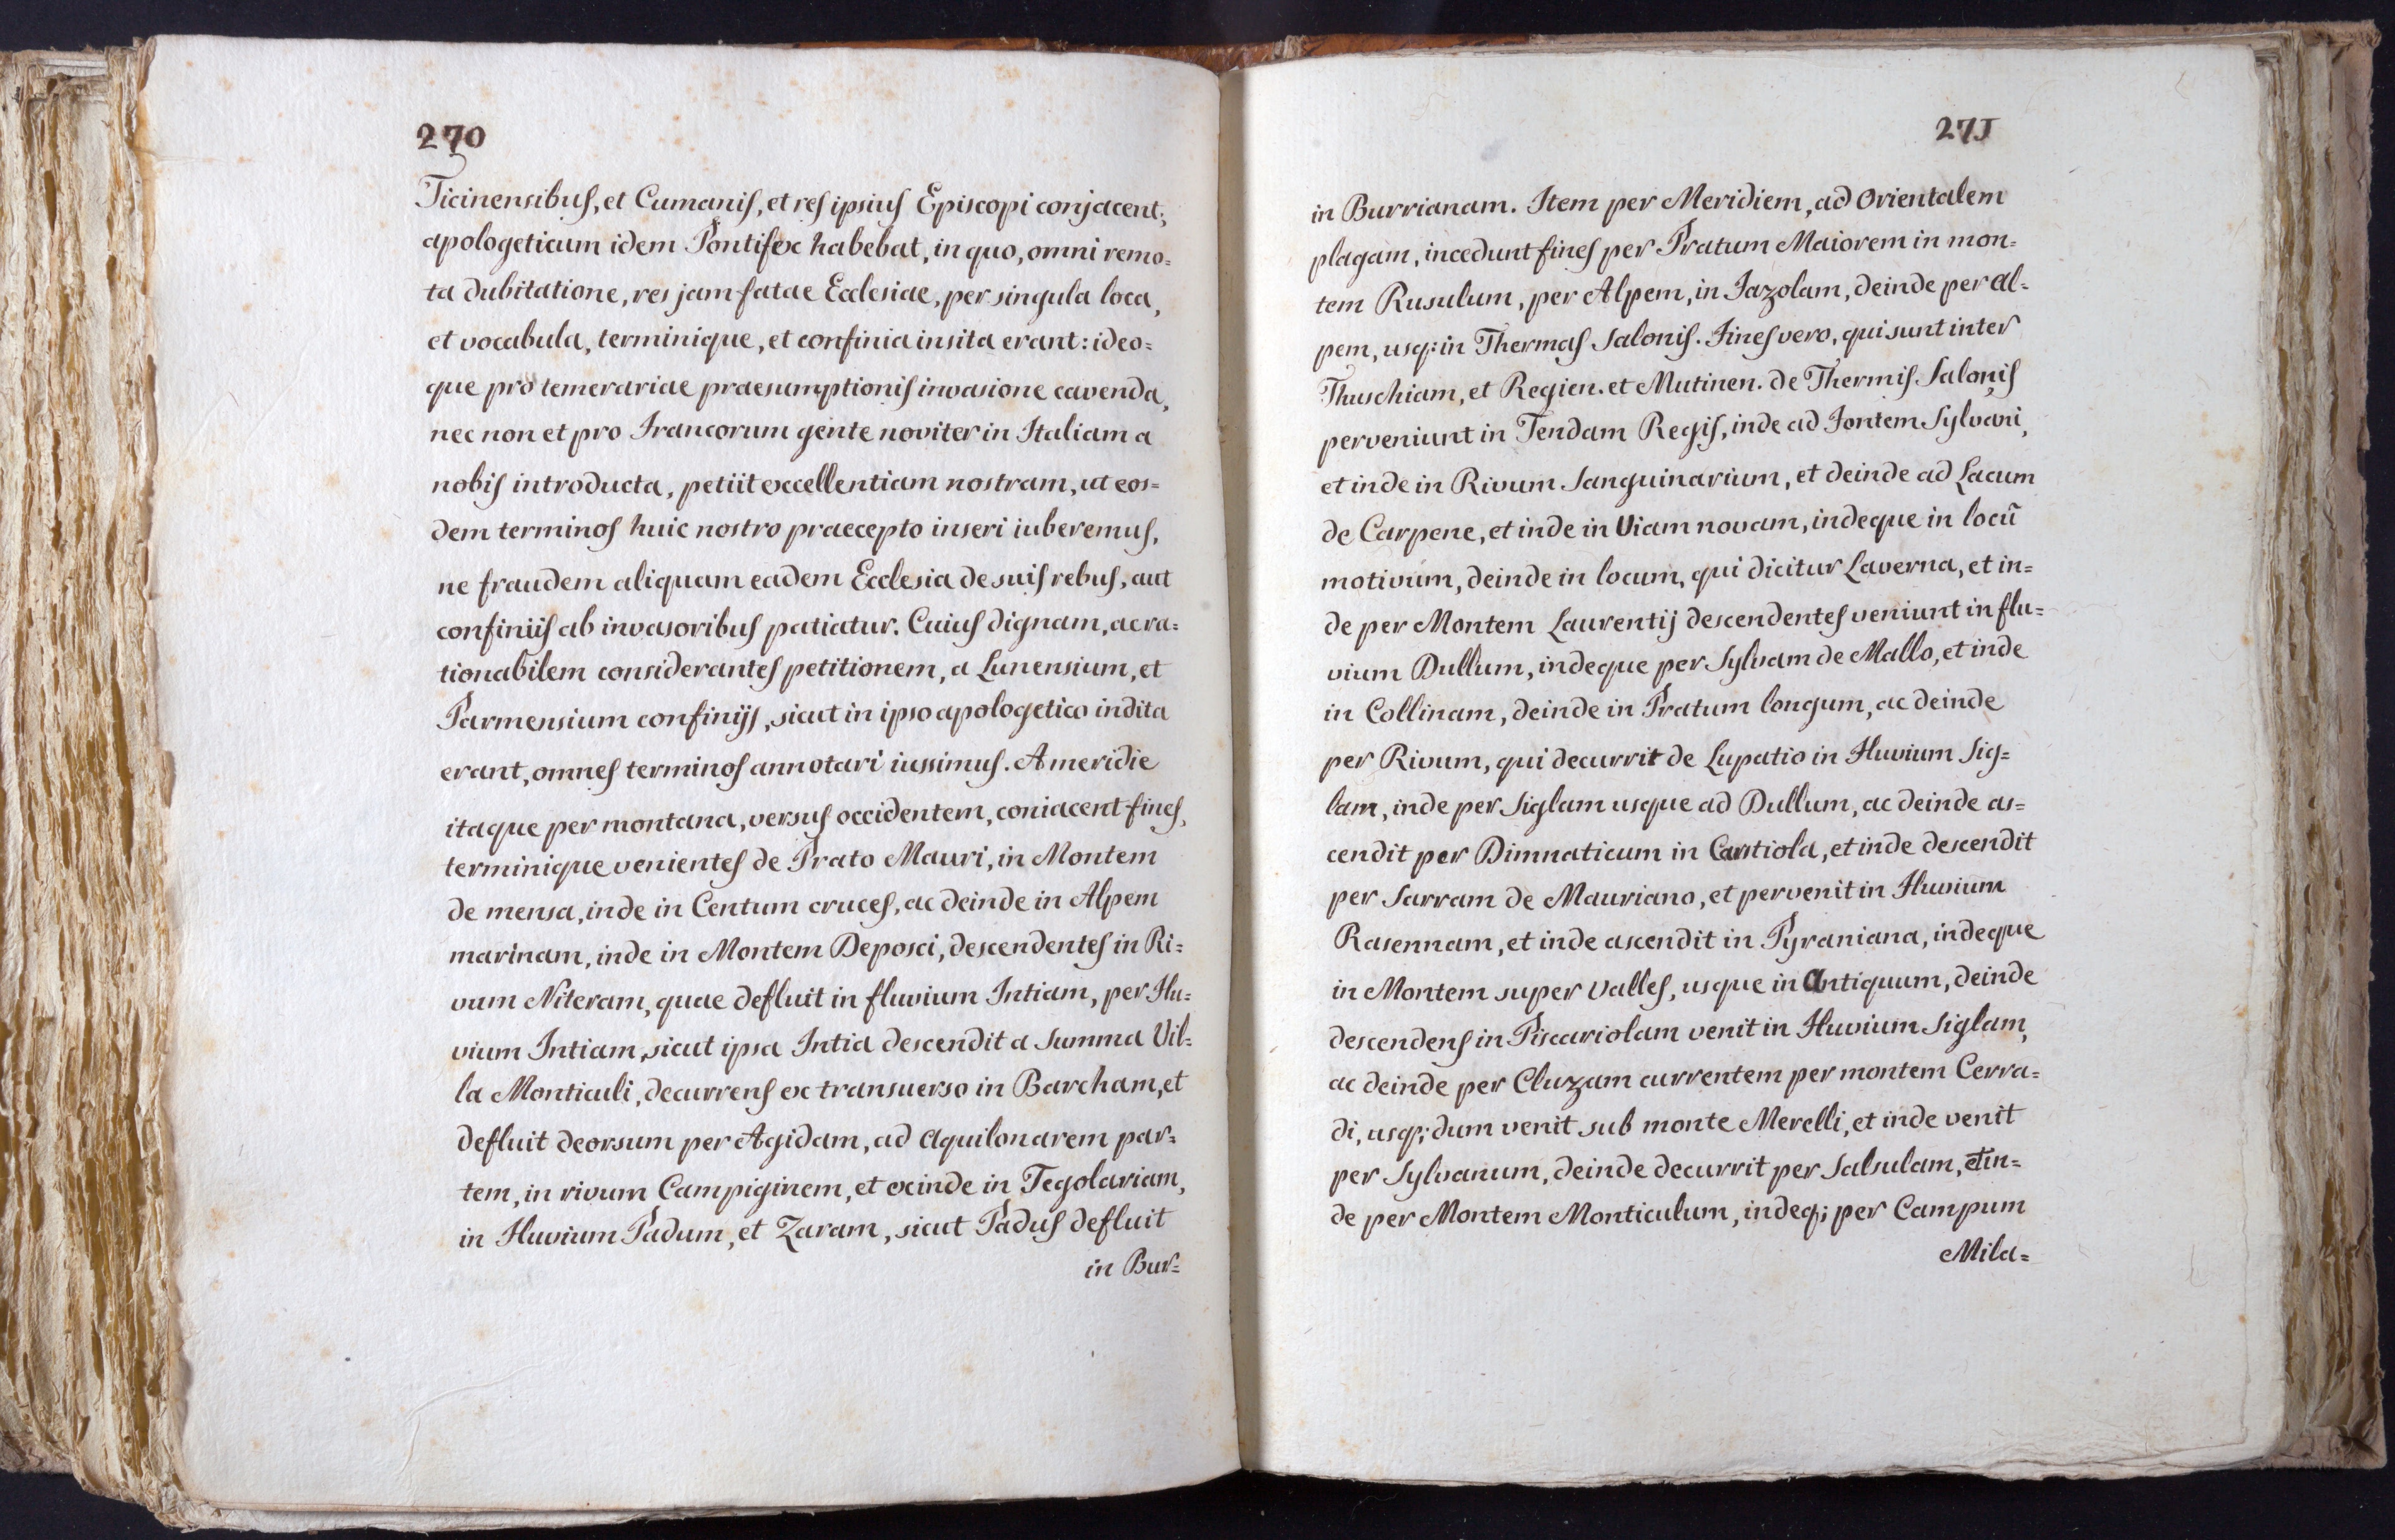 270
Ticinensibus, et Cumanis, et res ipsius Episcopi conjacent;
apologeticum idem Pontifex habebat, in quo, omni remo=
ta dubitatione, res jam fatae Ecclesiae, per singula loca,
et vocabula, terminique, et confinia insita erant: ideo=
que pro temerariae praesumptionis invasione cavenda,
nec non et pro Francorum gente noviter in Italiam a
nobis introducta, petiit excellentiam nostram, ut eos=
dem terminos huic nostro praecepto inseri iuberemus,
ne fraudem aliquam eadem Ecclesia de suis rebus, aut
confiniis ab invasoribus patiatur. Cuius dignam, ac ra=
tionabilem considerantes petitionem, a Lunensium, et
Parmensium confinijs, sicut in ipso apologetico indita
erant, omnes terminos annotari iussimus. A meridie
itaque per montana, versus occidentem, coniacent fines,
terminique venientes de Prato Mauri, in Montem
de mensa, inde in Centum cruces, ac deinde in Alpem
marinam, inde in Montem Deposci, descendentes in Ri=
vum Niteram, quae defluit in fluvium Intiam, per Flu=
vium Intiam, sicut ipsa Intia descendit a Summa Vil=
la Monticuli, decurrens ex transuerso in Barcham, et
defluit deorsum per Agidam, ad Aquilonarem par=
tem, in rivum Campiginem, et exinde in Tegolariam,
in Fluvium Padum, et Zaram, sicut Padus defluit
in Bur=
271
in Burrianam. Item per Meridiem, ad Orientalem
plagam, incedunt fines per Pratum Maiorem in mon=
tem Rusulum, per Alpem, in Fazolam, deinde per Al=
pem, usq: in Thermas Salonis. Fines vero, qui sunt inter
Thuschiam, et Regien. et Mutinen. de Thermis Salonis
perveniunt in Tendam Regis, inde ad Fontem Sylvani,
et inde in Rivum Sanguinarium, et deinde ad Lacum
de Carpene, et inde in Viam novam, indeque in locũ
motivum, deinde in locum, qui dicitur Laverna, et in=
de per Montem Laurentij descendentes veniunt in flu=
vium Dullum, indeque per Sylvam de Mallo, et inde
in Collinam, deinde in Pratum longum, ac deinde
per Rivum, qui decurrit de Lupatio in Fluvium Sig=
lam, inde per Siglam usque ad Dullum, ac deinde as=
cendit per Dimnaticum in Cantiola, et inde descendit
per Sarram de Mauriano, et pervenit in Fluvium
Rasennam, et inde ascendit in Pyraniana, indeque
in Montem super Valles, usque in Antiquum, deinde
descendens in Piscariolam venit in Fluvium Siglam,
ac deinde per Cluzam currentem per montem Cerra=
di, usq; dum venit sub monte Merelli, et inde venit
per Sylvanum, deinde decurrit per Salsulam, et in=
de per Montem Monticulum, indeq; per Campum
Mila=